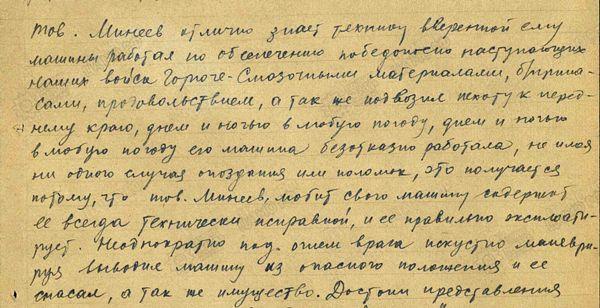 тов. Минеев отлично знает технику вверенной ему
машины работая по обеспечению победоносно наступающих
наших войск Горюче-Смазочными материалами, боеприпа-
сами, продовольствием, а так же подвозил пехоту к перед-
нему краю, днем и ночью в любую погоду, днем и ночью
в любую погоду его машина безотказно работала, не имея
ни одного случая опоздания или поломок, это получается
потому, что тов. Минеев любит свою машину содержит
ее всегда технически исправной, и ее правильно эксплоати-
рует. Неоднократно под огнем врага искустно маневри-
руя выводил машину из опасного положения и ее
спасал, а так же имущество. Достоин представления